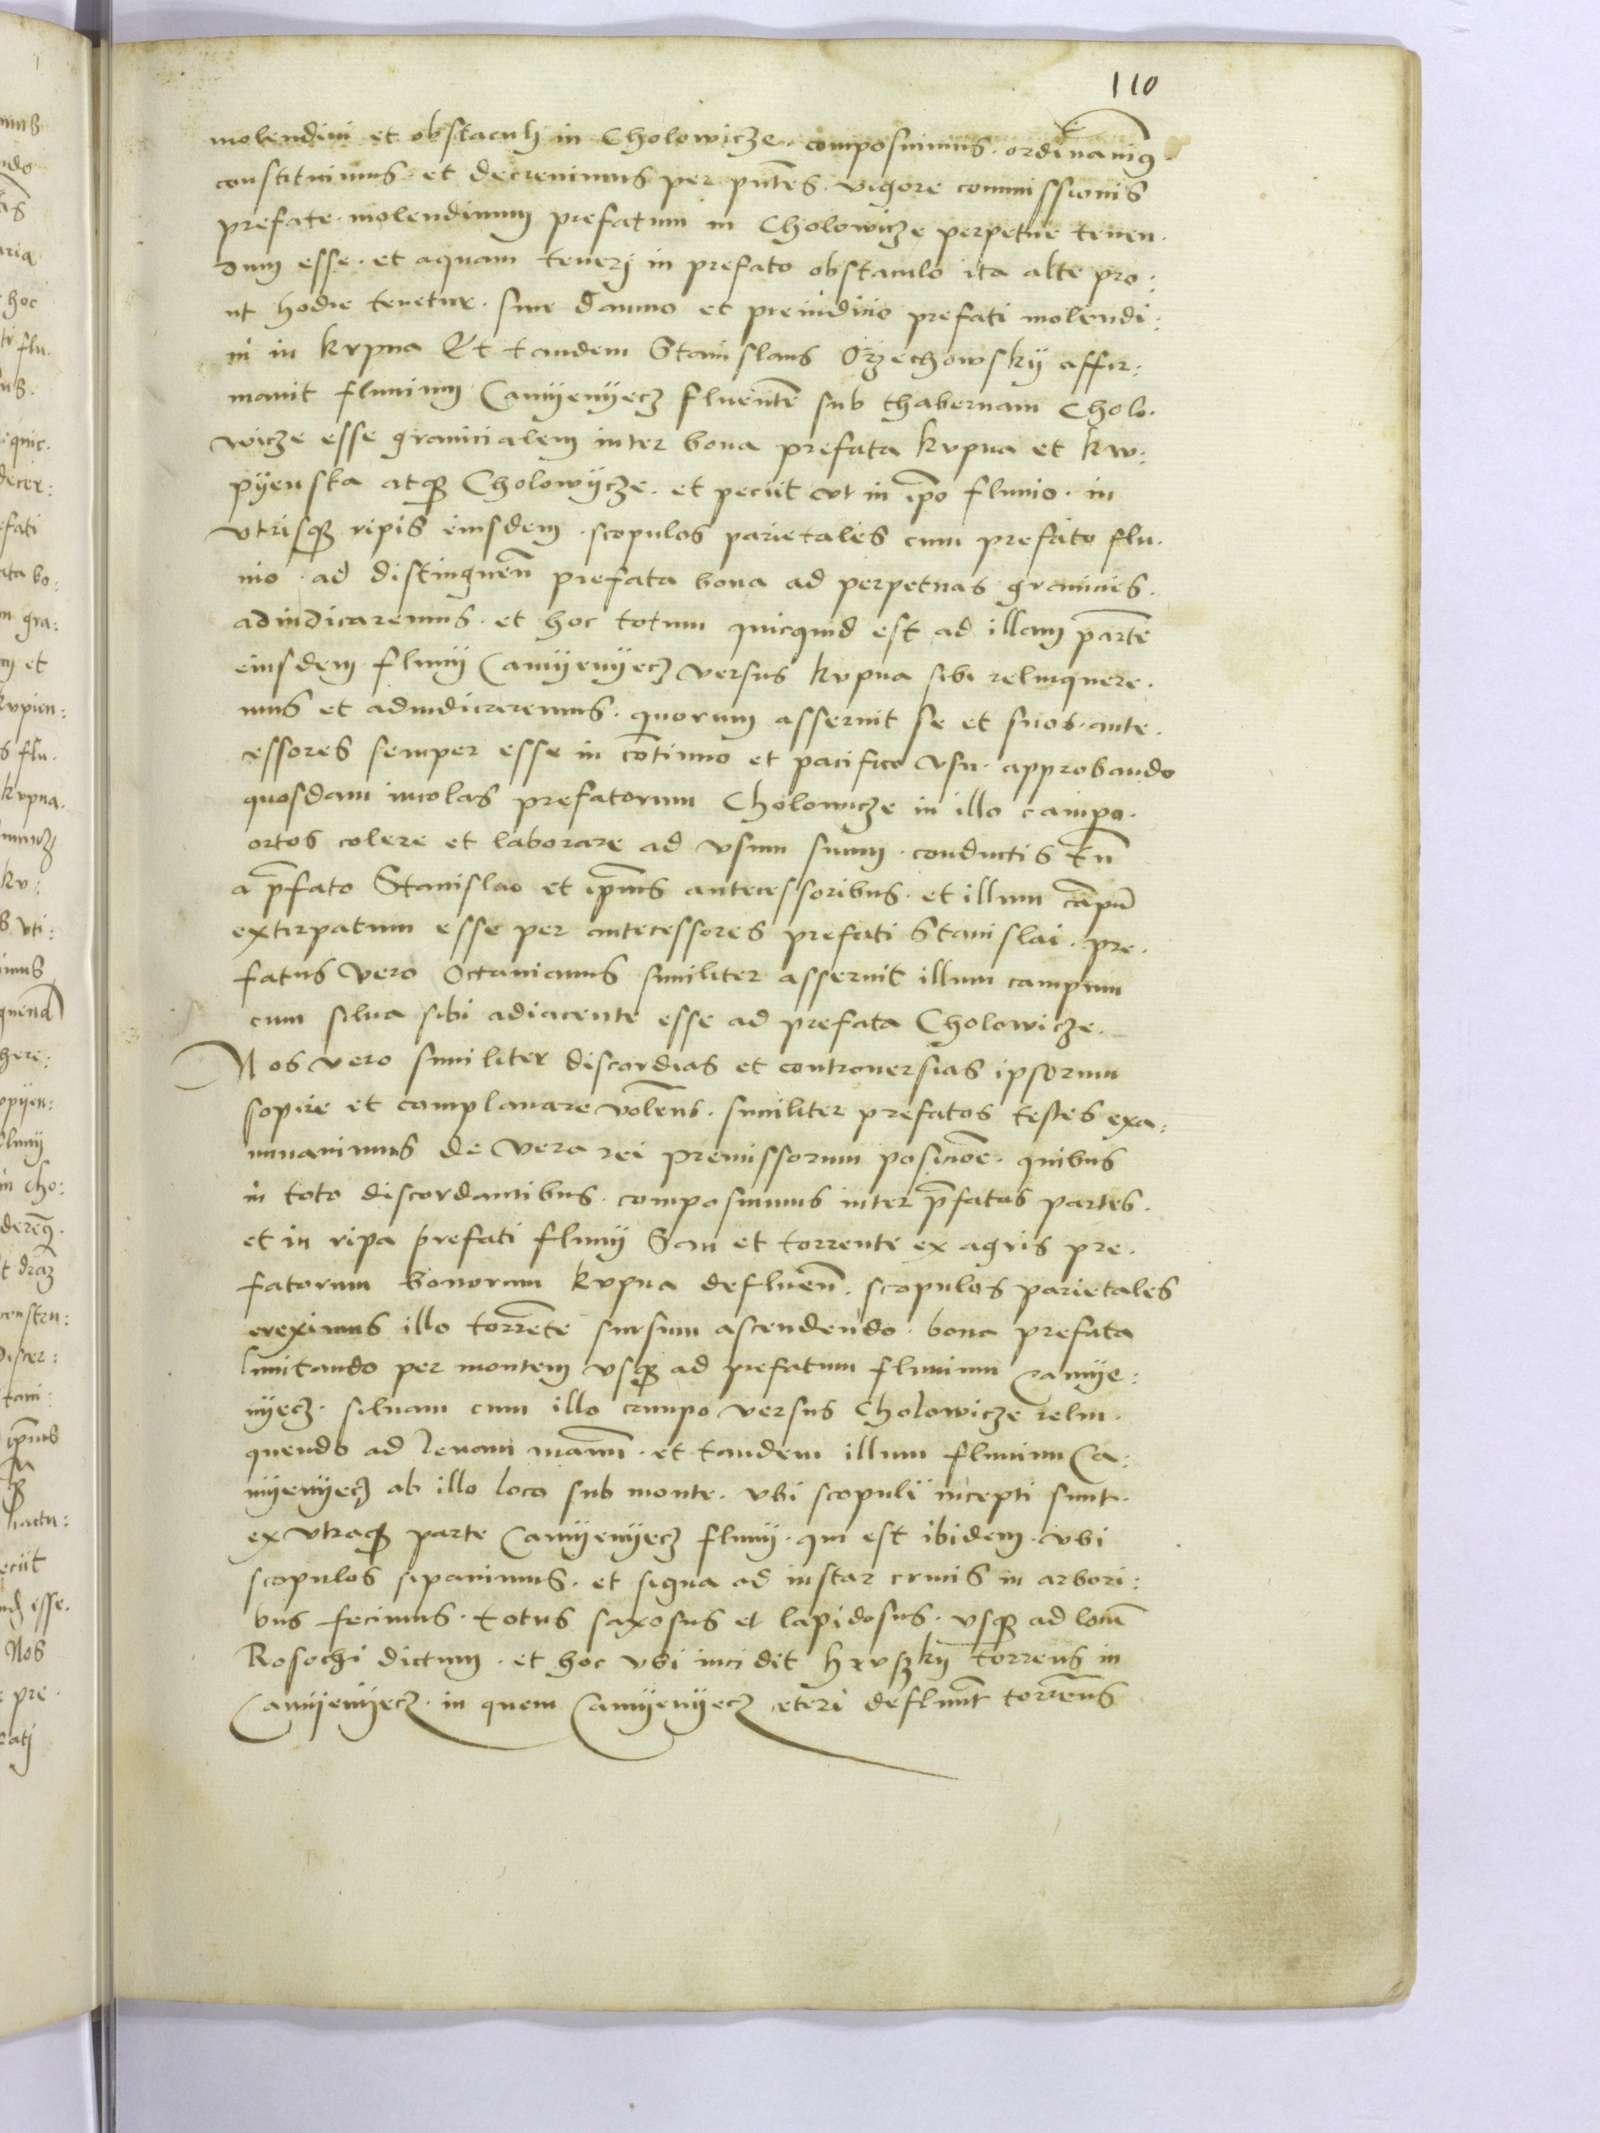 110
molendini et obstaculi in Cholowicze. composuimus. ordinauimus.
constituimus et decreuimus per pñtes. vigore commissionis
prefate. molendinum prefatum in Cholowicze perpetue tenen.
dum esse. et aquam tenerj in prefato obstaculo ita alte pro:
ut hodie tenetur. sine damno et preiudicio prefati molendi:
ni in krpna Et tandem Stanislaus Orzechowskÿ affir:
mauit fluuium Camÿenÿecz fluentẽ sub thabernam Cholo.
wicze esse granicialem inter bona prefata krpna et kw:
pÿenska atqꝫ Cholowÿcze. et peciit vt in ip̃o fluuio. in
vtrisqꝫ ripis eiusdem. scopulos parietales cum prefato flu.
uio. ad distinguen̄ prefata bona ad perpetuas granicies.
adiudicaremus. et hoc totum quicquid est ad illam partẽ
eiusdem fluuÿ Camÿenÿecz versus krpna sibi relinquere.
mus et adiudicaremus. quorum asseruit se et suos. ante.
cessores semper esse in cõtinuo et pacifico vsu. approbando
quosdam incolas prefatorum Cholowicze in illo campo.
ortos colere et laborare ad vsum suum. conductis tñ
a p̃fato Stanislao et ip̃ius antecessoribus. et illum cãpũ
extirpatum esse per antecessores prefati Stanislai. pre.
fatus vero Octauianus similiter asseruit illum campum
cum silua sibi adiacente esse ad prefata Cholowicze.
Nos vero similiter discordias et controuersias ipsorum
sopire et complanare volens. similiter prefatos testes exa:
minauimus de vera rei premissorum posicioẽ. quibus
in toto discordantibus. composuimus inter p̃fatas partes.
et in ripa prefati fluuÿ San et torrente ex agris pre.
fatorum bonorum krpna defluen̄. scopulos parietales
ereximus illo torrẽte sursum ascendendo. bona prefata
limitando per montem vsqꝫ ad prefatum fluuium Camÿe:
nÿecz. siluam cum illo campo versus Cholowicze relin.
quendo ad leuam manũ. et tandem illum fluuium Ca:
mÿenÿecz ab illo loco sub monte. vbi scopuli incepti sunt.
ex vtraqꝫ parte Camÿenÿecz fluuÿ. qui est ibidem. vbi
scopulos sipauimus. et signa ad instar crucis in arbori:
bus fecimus. totus saxosus et lapidosus. vsqꝫ ad locũ
Rosochi dictum. et hoc vbi incidit hrvszkÿ torrens in
Camÿenÿecz. in quem Camÿenÿecz ceteri defluũt torrẽns